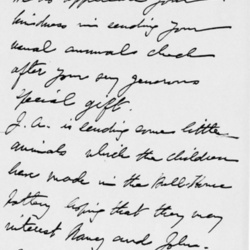 kindness in sending your
usual annual check
after your very generous
special gift.
J.A. is sending some little
animals which the children
have made in the Hull-House
pottery hoping that they may
interest Nancy and John.